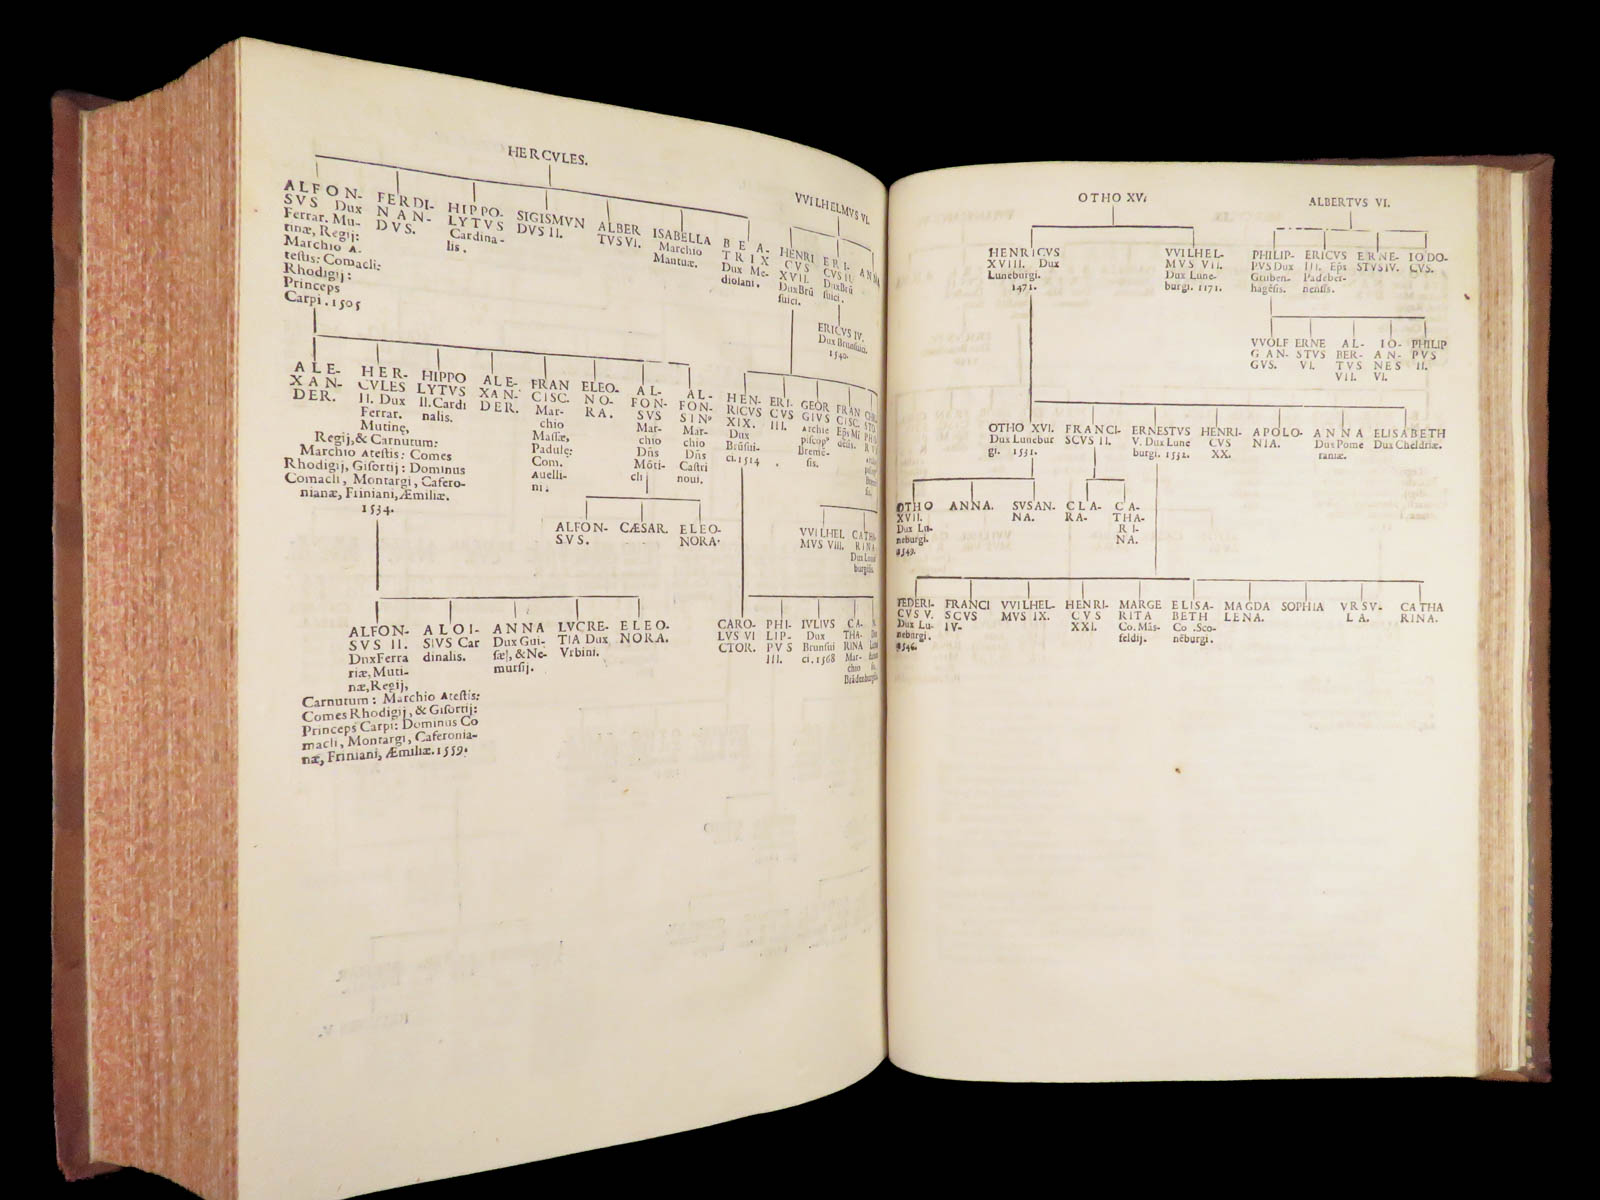 HERCVLES.
ALFON-
SVS Dux
Ferrar. Mu-
tinæ, Regij:
Marchio A-
testis: Comacli:
Rhodigij:
Princeps
Carpi. 1505
FERDI-
NAN-
DVS.
HIPPO-
LYTVS
Cardina-
lis.
SIGISMVN
DVS II.
ALBER
TVS VI.
ISABELLA
Marchio
Mantuæ.
BEA-
TRIX
Dux Me-
diolani.
VVILHELMVS VI.
HENRI
CVS
XVII.
Dux Brũ
suici.
ERI-
CVS II.
Dux Brũ
suici.
ANNA
ERICVS IV.
Dux Brunsuici.
1540.
ALE-
XAN-
DER.
HER-
CVLES
II. Dux
Ferrar.
Mutinę,
Regij, & Carnutum:
Marchio Atestis: Comes
Rhodigij, Gisortij: Dominus
Comacli, Montargi, Cafero-
nianæ, Friniani, Æmiliæ.
1534.
HIPPO
LYTVS
II. Cardi
nalis.
ALE-
XAN-
DER.
FRAN
CISC.
Mar-
chio
Massæ,
Padulę:
Com.
Auelli-
ni:
ELEO-
NO-
RA.
AL-
FON-
SVS
Mar-
chio
Dñs
Mõti-
cli
AL-
FON-
SINꝰ
Mar-
chio
Dñs
Castri
noui.
ALFON-
SVS.
CÆSAR.
ELEO-
NORA.
HEN-
RICVS
XIX.
Dux
Brũsui-
ci. 1514
ERI-
CVS
III.
GEOR
GIVS
Archie
piscopꝰ
Bremẽ-
sis.
FRAN
CISC.
Ep̃s Mi
dẽsis.
VVILHEL
MVS VIII.
CATHA
RINA
Dux Lune
burgẽsis.
ALFON-
SVS II.
Dnx Ferra
riæ, Muti-
næ, Regij,
Carnutum: Marchio Atestis:
Comes Rhodigij, & Gisortij:
Princeps Carpi: Dominus Co
macli, Montargi, Caferonia-
næ, Friniani, Æmiliæ. 1559.
ALOI-
SIVS Car
dinalis.
ANNA
Dux Gui-
sæ, & Ne-
mursij.
LVCRE-
TIA Dux
Vrbini.
ELEO.
NORA.
CARO-
LVS VI
CTOR.
PHI-
LIP-
PVS
III.
IVLIVS
Dux
Brunsui
ci. 1568
CA-
THA-
RINA
Mar-
chio
Brãdenburgẽsis
OTHO XV.
HENRICVS
XVIII. Dux
Luneburgi.
1471.
VVILHEL-
MVS VII.
Dux Lune-
burgi. 1171.
ALBERTVS VI.
PHILIP-
PVS Dux
Gruben-
hagẽsis.
ERICVS
III. Ep̃s
Padeber-
nensis.
ERNE-
STVS IV.
IODO-
CVS.
VVOLF
GAN-
GVS.
ERNE
STVS
VI.
AL-
BER-
TVS
VII.
IO-
AN-
NES
VI.
PHILIP
PVS
II.
OTHO XVI.
Dux Lunebur
gi. 1531.
FRANCI-
SCVS II.
ERNESTVS
V. Dux Lune
burgi. 1532.
HENRI-
CVS
XX.
APOLO-
NIA.
ANNA
Dux Pome
raniæ.
ELISABETH
Dux Cheldriæ.
OTHO
XVII.
Dux Lu-
neburgi.
1549.
ANNA.
SVSAN-
NA.
CLA-
RA-
CA-
THA-
RI-
NA.
FEDERI-
CVS V.
Dux Lu-
neburgi.
1546.
FRANCI
SCVS
IV-
VVILHEL-
MVS IX.
HENRI-
CVS
XXI.
MARGE
RITA
Co. Mãs-
feldij.
ELISA-
BETH
Co. Sco-
nẽburgi.
MAGDA
LENA.
SOPHIA
VRSV-
LA.
CATHA
RINA.